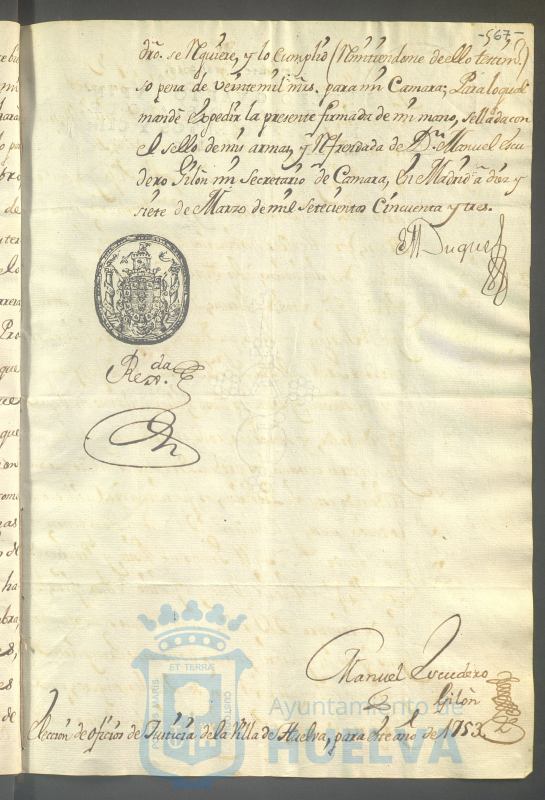 -567-
dro. se requiere, y lo cumplió (remitiendome de ello testimo.)
so pena de veinte mil mrs. para mi Camara; Para lo qual
mandè expedir la presente firmada de mi mano, sellada con
el sello de mis armas, y refrendada de Dn. Manuel Escu
dero Gilòn mi Secretario de Camara, en Madrid a diez y
siete de Marzo de mil setecientos Cincuenta y tres.
El Duque
Reda.
Manuel Escudero
Gilòn
Elección de oficios de Justicia de la Villa de Huelva, para este año de 1753
PORTUS MARIS ET TERRÆ CUSTODIA
Ayuntamiento de
HUELVA